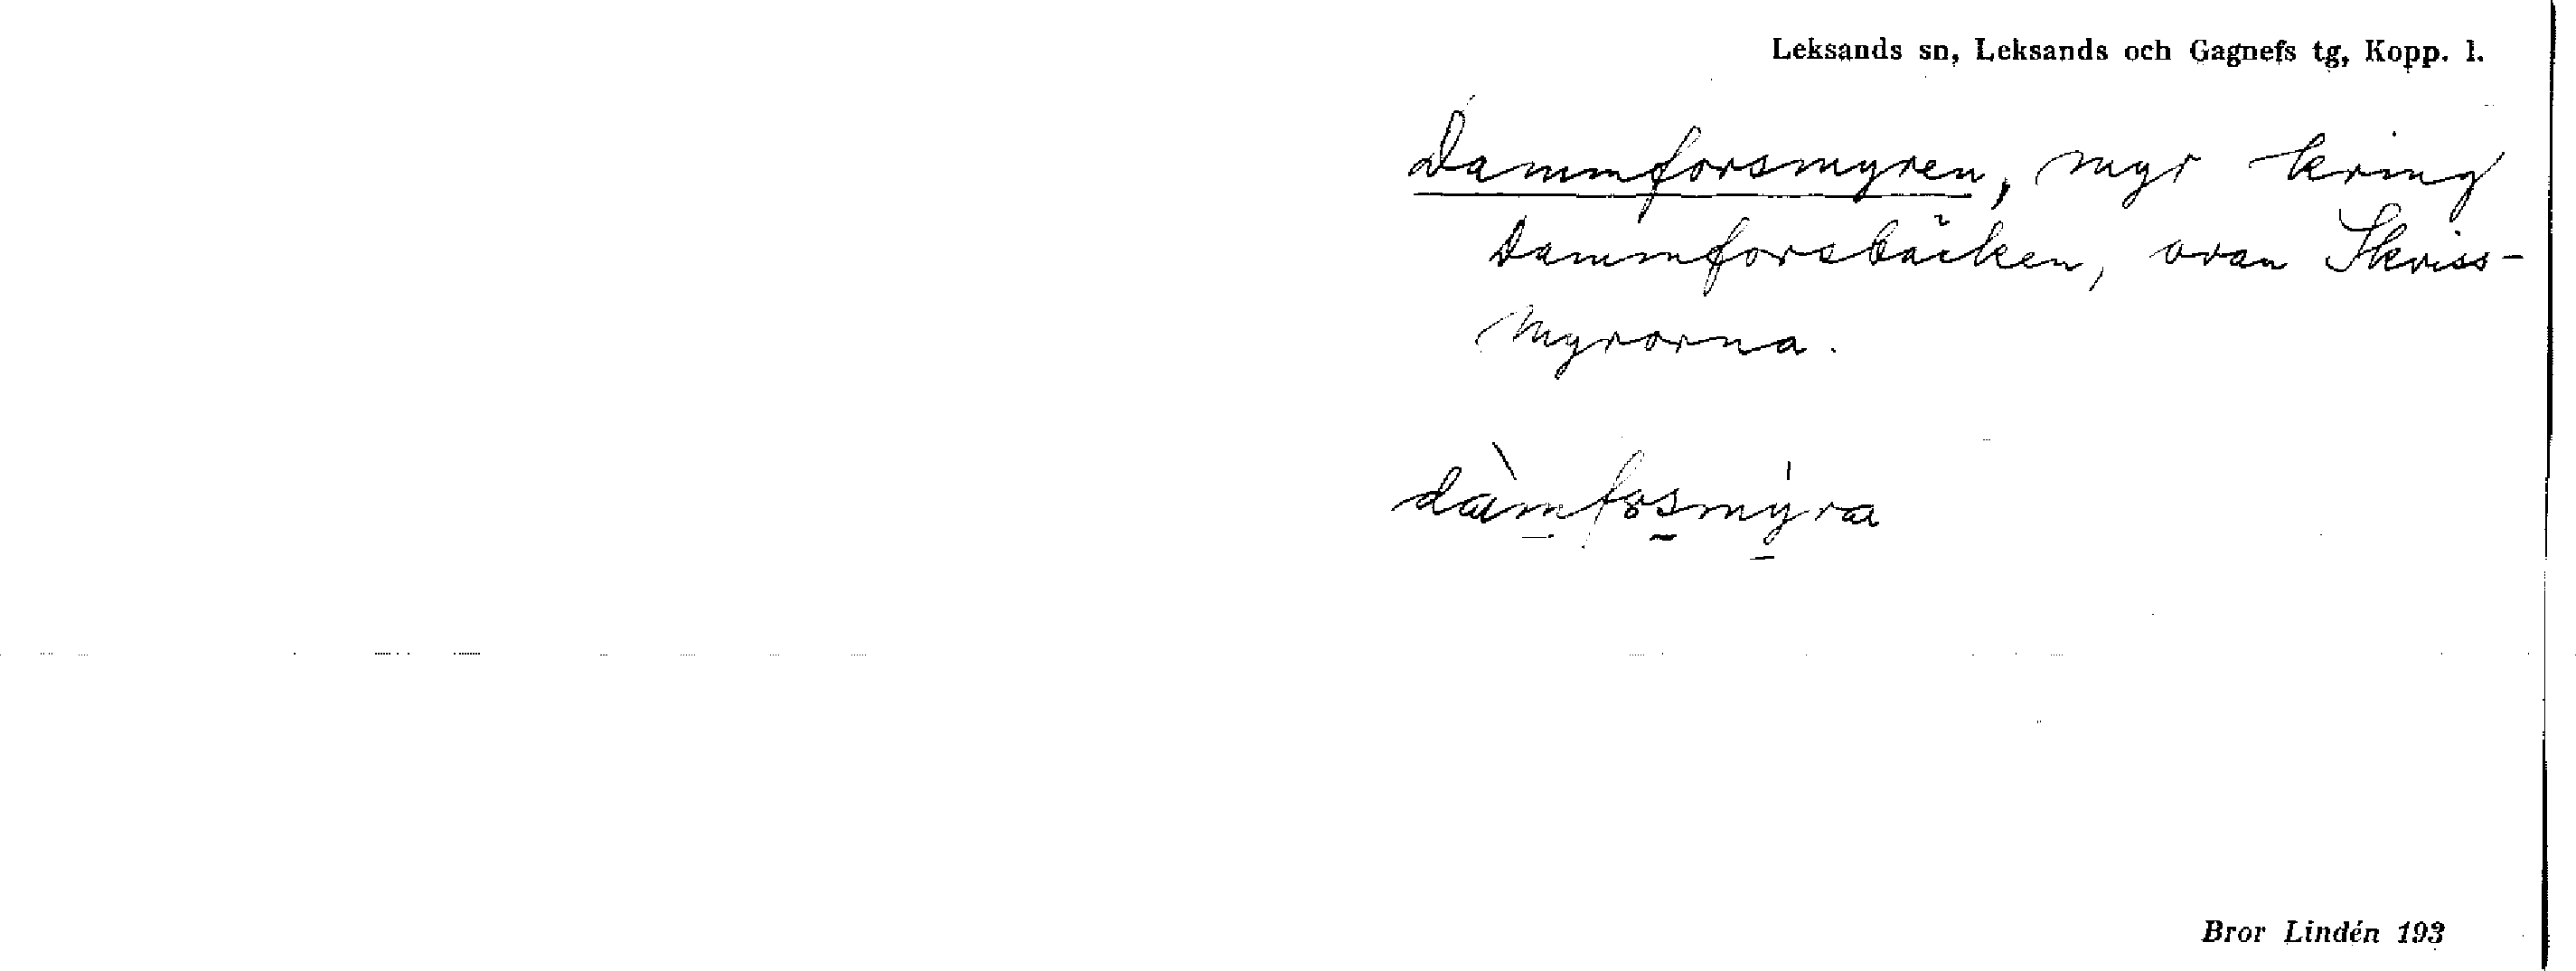 Leksands sn, Leksands och Gagnefs tg, Kopp. l.
Dammforsmyren, myr kring
Dammforsbäcken, ovan Skriss-
myrorna.
dàmfosmýra
Bror Lindén 193